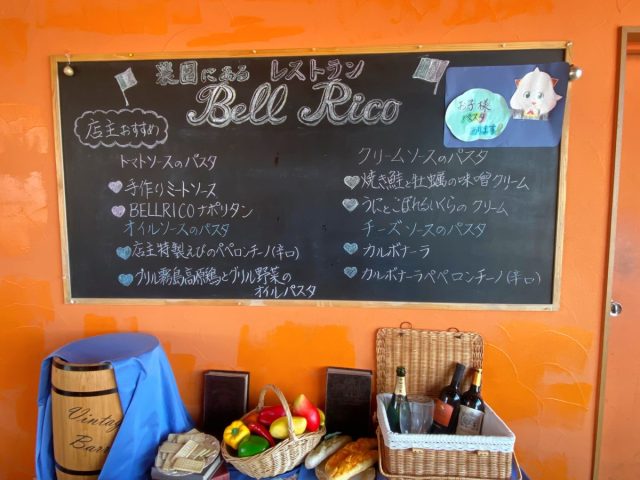 農園にある レストラン
Bell Rico
店主おすすめ
トマトソースのパスタ
手作りミートソース
BELLRICOナポリタン
オイルソースのパスタ
店主特製えびのペペロンチーノ(辛口)
グリル霧島高原鶏とグリル野菜の
オイルパスタ
クリームソースのパスタ
焼き鮭と牡蠣の味噌クリーム
うにとこぼれるいくらのクリーム
チーズソースのパスタ
カルボナーラ
カルボナーラペペロンチーノ(辛口)
お子様
パスタ
あります
Vintage
Barrel